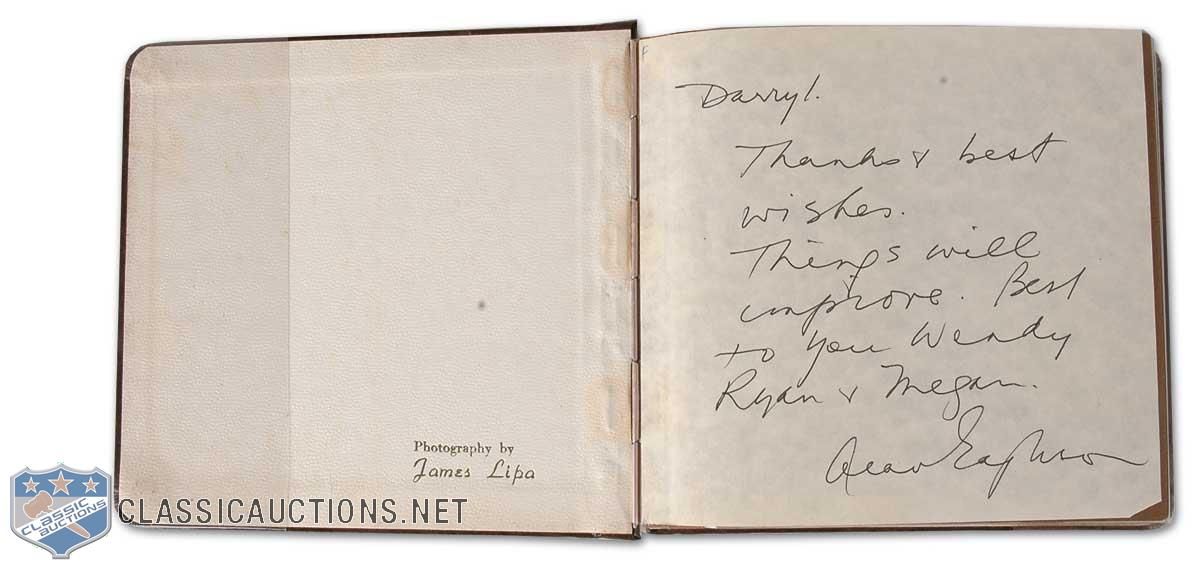 Photography by
James Lipa
Darryl.
Thanks & best
wishes.
Things will
improve. Best
to you Wendy
Ryan & Megan.
CLASSIC
AUCTIONS
CLASSICAUCTIONS.NET